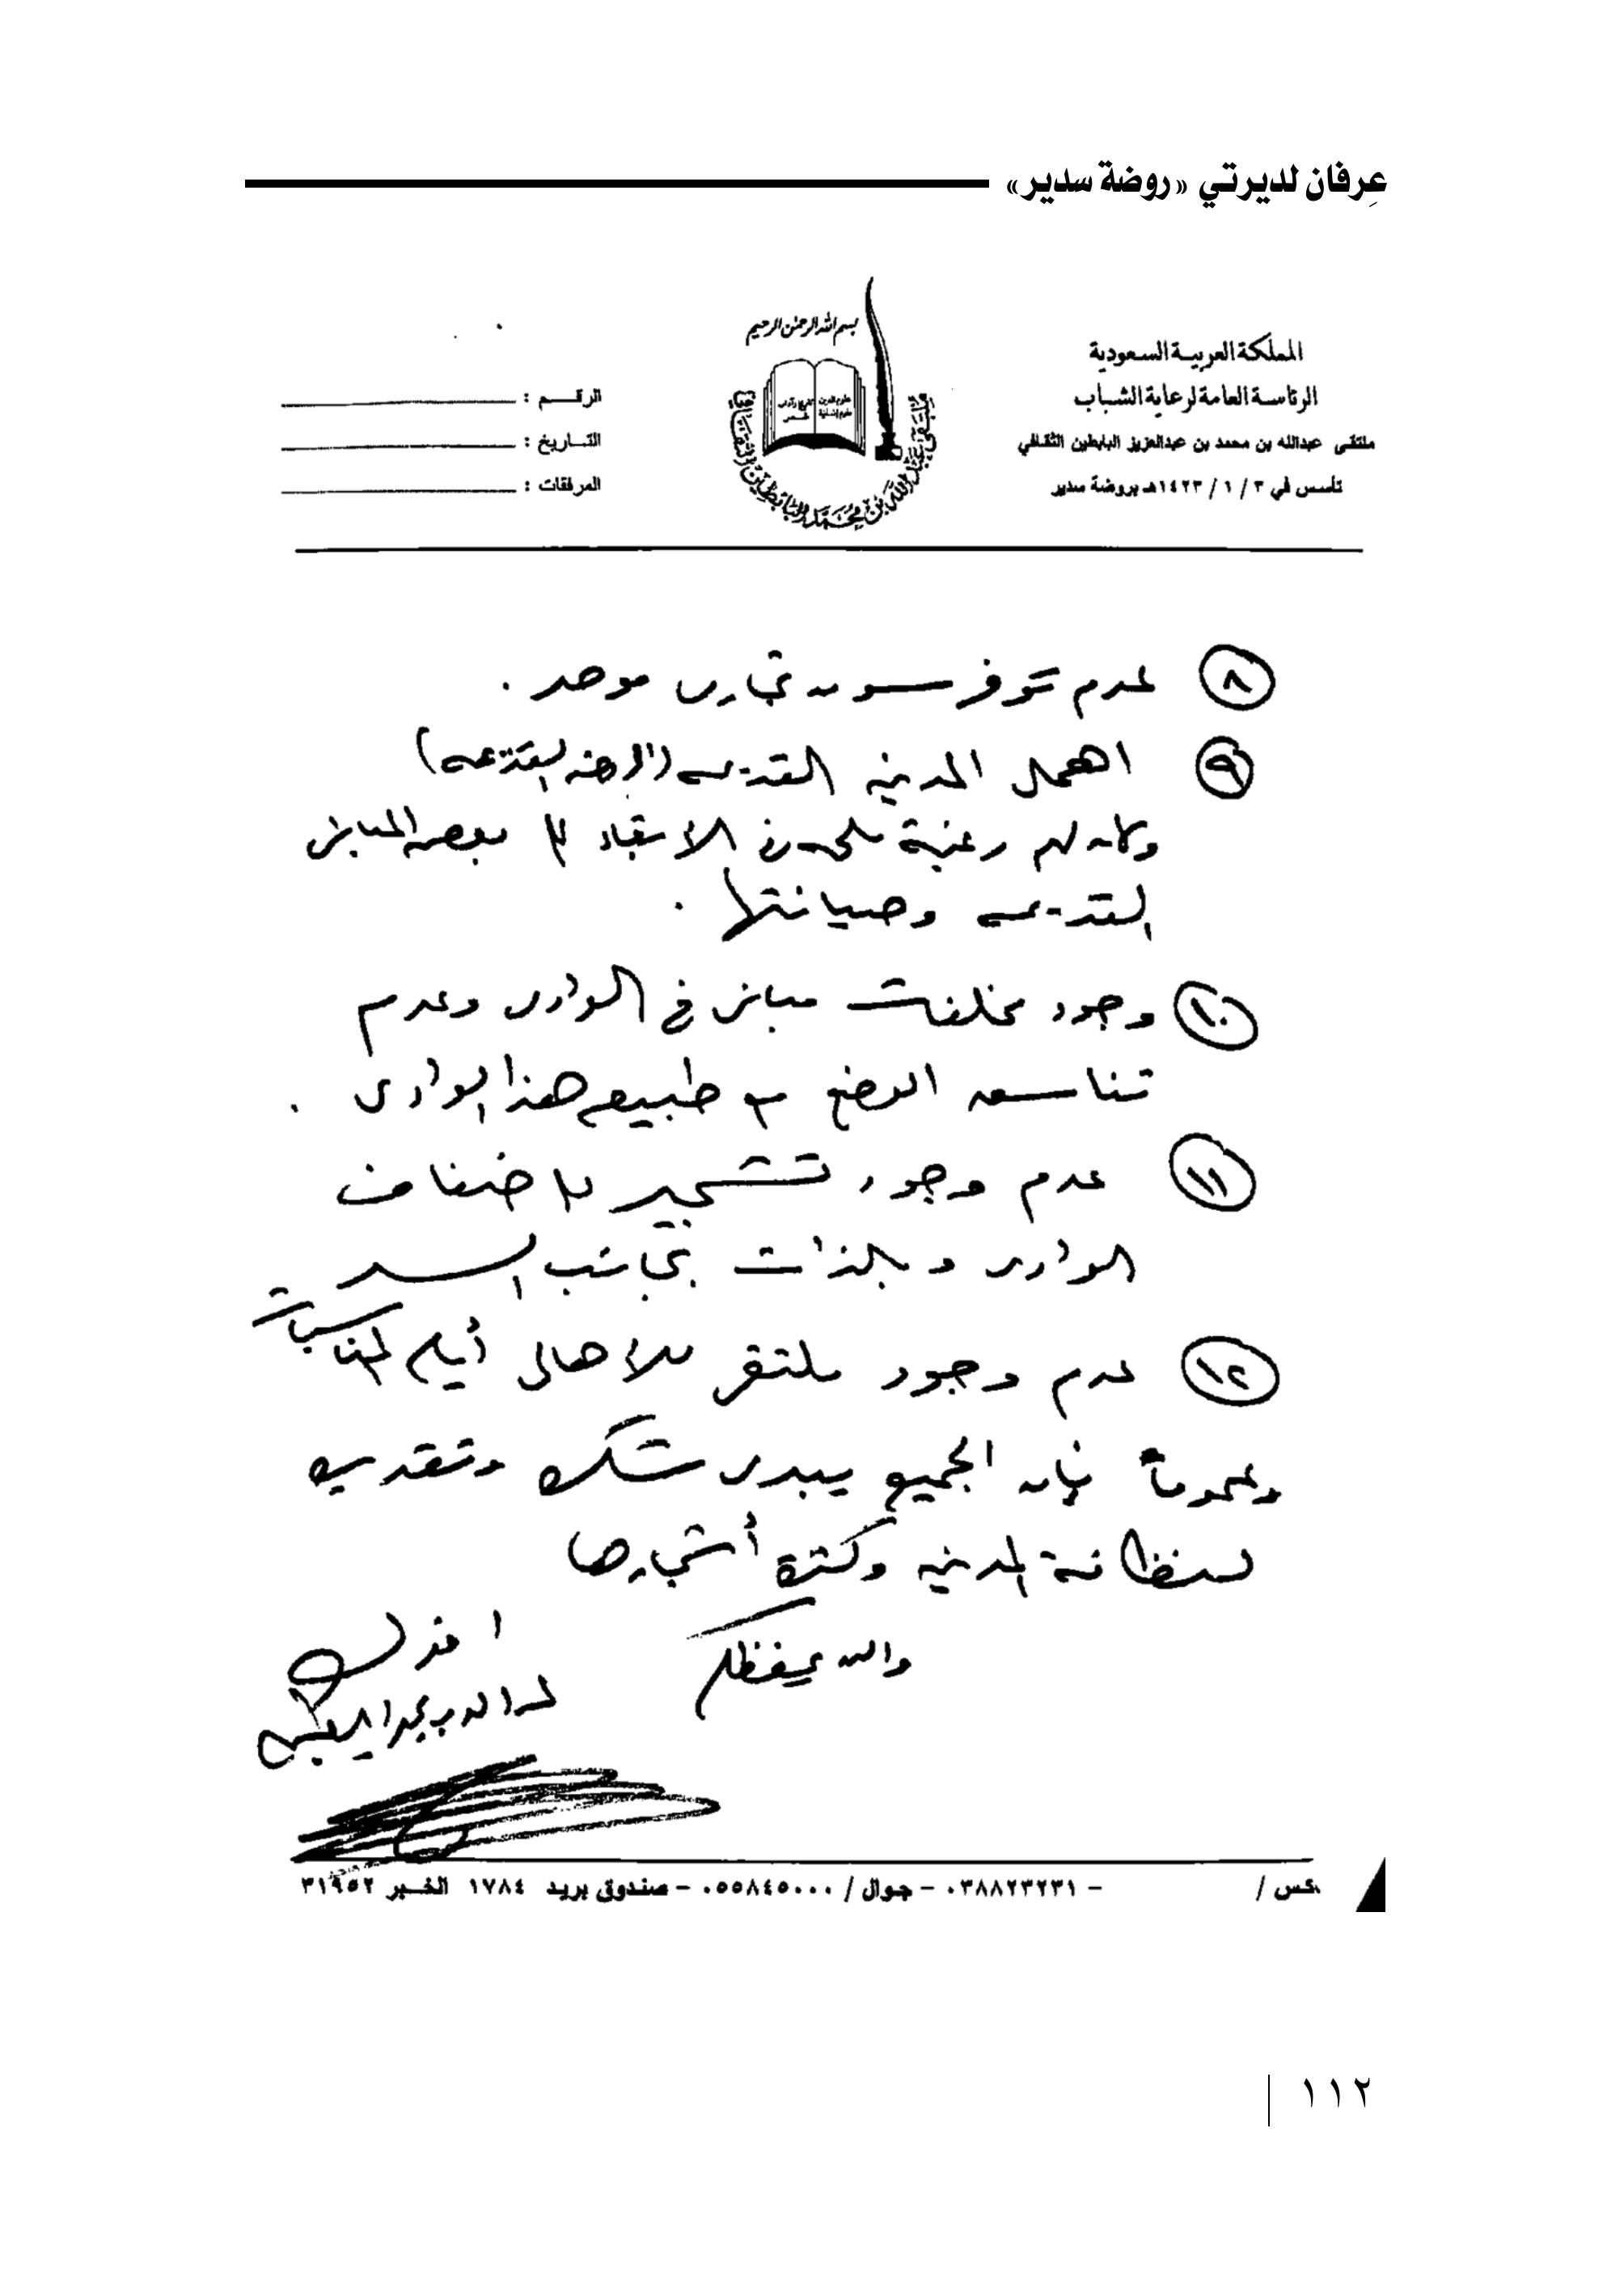 عِرفان لديرتي «روضة سدير»
المملكة العربية السعودية
الرئاسة العامة لرعاية الشباب
ملتقى عبدالله بن محمد بن عبدالعزيز البابطين الثقافي
تأسس في ٣ / ١ / ١٤٢٣هـ بروضة سدير
بسم الله الرحمن الرحيم
ملتقى عبدالله بن محمد البابطين الثقافي
الرقم :
التاريخ :
المرفقات :
٨ عدم توفر سوق تجاري موحد .
٩ اهمال المدينة القديمة (الروضة القديمة)
وكان لهم رغبة ملحة في الابقاء على بعض المباني
القديمة وصيانتها .
١٠ وجود مخلفات مباني في الوادي وعدم
تناسق الوضع مع طبيعة هذا الوادي .
١١ عدم وجود تشجير على ضفاف
الوادي وبالذات بجانب السد
١٢ عدم وجود ملتقى للأهالي أيام المناسبات
وعموماً فإن الجميع يبدى شكره وتقديره
لنظافة المدينة وكثرة أشجارها
والله يحفظكم
اخوك
عبدالله بن محمد البابطين
كس / - ٠٣٨٨٢٣٢٣١ - جوال / ٠٥٥٨٤٥٠٠٠ - صندوق بريد ١٧٨٤ الخبر ٣١٩٥٢
١١٢